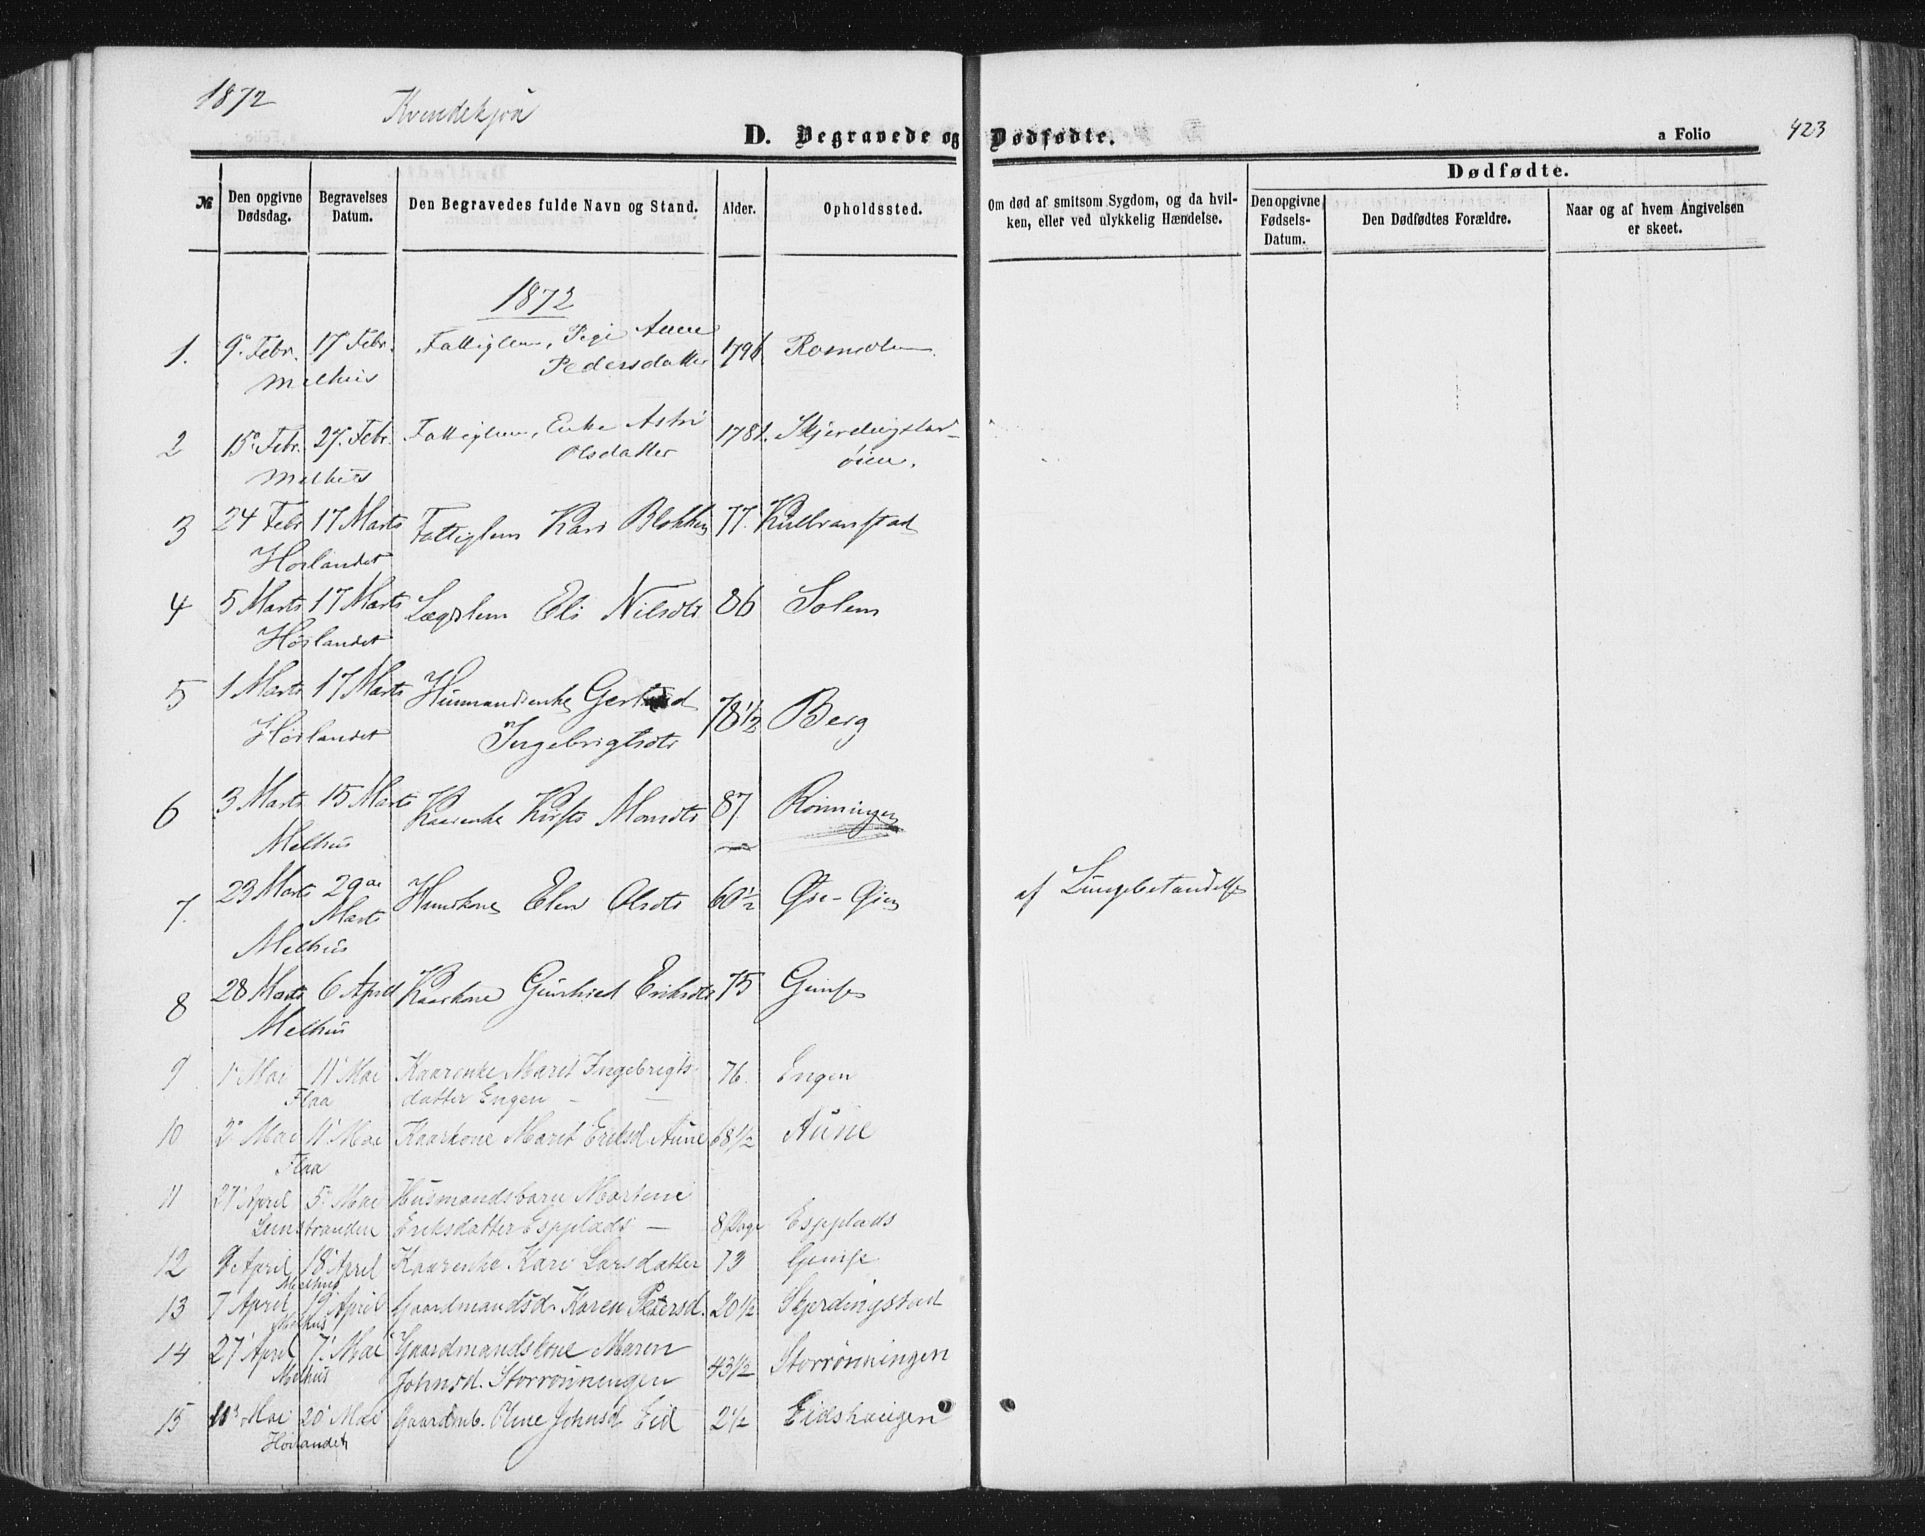 1872 Kvindekjøn
D. Begravede og Dødfødte. a Folio 423
№ Den opgivne Dødsdag. Begravelses Datum. Den Begravedes fulde Navn og Stand. Alder. Opholdssted. Om død af smitsom Sygdom, og da hvilken, eller ved ulykkelig Hændelse. Dødfødte.
Den opgivne Fødsels-Datum. Den Dødfødtes Forældre. Naar og af hvem Angivelsen er skeet.
1872
1. 9. Febr. 17 Febr. Fattiglem, Pige Anne 1796. 
Melhus Pedersdatter
2 15. Febr. 27. Febr. Fattiglem, Enke Astri 1781.
Melhus Olsdatter øien.
3 24 Febr 17 Marts Fattiglem Kari Blokken 77.
Horlandet
4 5 Marts 17 Marts Lægdslem Eli Nilsdtr 86 Solem
Hörlandet
5 1 Marts 17 Marts Husmandsenke Gertrud 78 1/2 Berg
Hörlandet Ingebrigtsdtr
6 3 Marts 15 Marts Kaarenke Kirsti 87 Rönningen
Melhus
7. 23 Marts 29de Marts Huuskone Elen Olsdtr 60 1/2 Øie-Øien af Lungebetændelse
Melhus
8 28 Marts 6 April Kaarkone Gunhild Eriksdtr 75 Gimse
Melhus
9 1. Mai 11' Mai Kaarenke Marit Ingebrigts- 76. Engen
Flaa datter Engen —
10 2. Mai 11' Mai Kaarkone Marit Eriksd Aune 68 1/2 Aune
Flaa
11 27' April 5. Mai Husmandsbarn Martine
Leinstranden Eriksdatter Espplads — 8 Dage Espplads
12 9. April 18' April Kaarenke Kari Larsdatter 73 Gimse
Melhus
13 7 April 19' April Gaardmandsd. Karen Petersd. 20 1/2 Skjerdingstad
Melhus
14 27' April 7' Mai Gaardmandskone Maren
Melhus Johnsd. Storrönningen 43 1/2 Storrönningen
15 11' Mai 20' Mai Gaardmb. Oline Johnsd Eid 2 1/2 Eidshaugen
Hörlandet